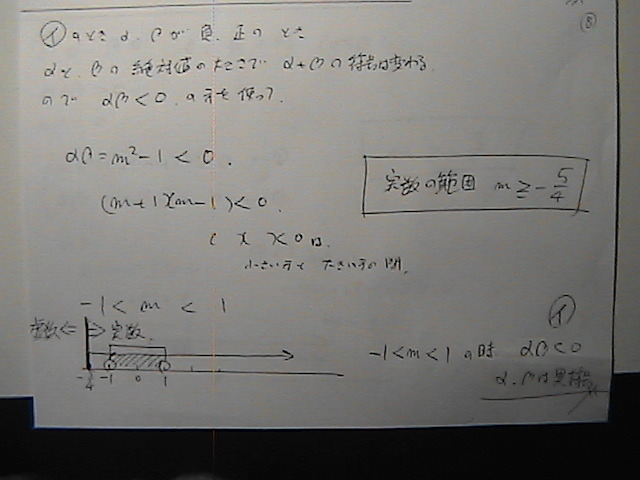 ⑧
㋑ のとき α、βが 負、正の とき
αと βの 絶対値の大きさで α+βの符号は変わる
ので αβ<0 の方を使って、
αβ=m²-1<0.
(m+1)(m-1)<0.
実数の範囲 m≧-5/4
( )( )<0は、
小さい方と 大きい方の間。
-1<m<1
虚数⇐ ⇒実数
-5/4 -1 0 1
㋑
-1<m<1の時 αβ<0
α、βは異符号